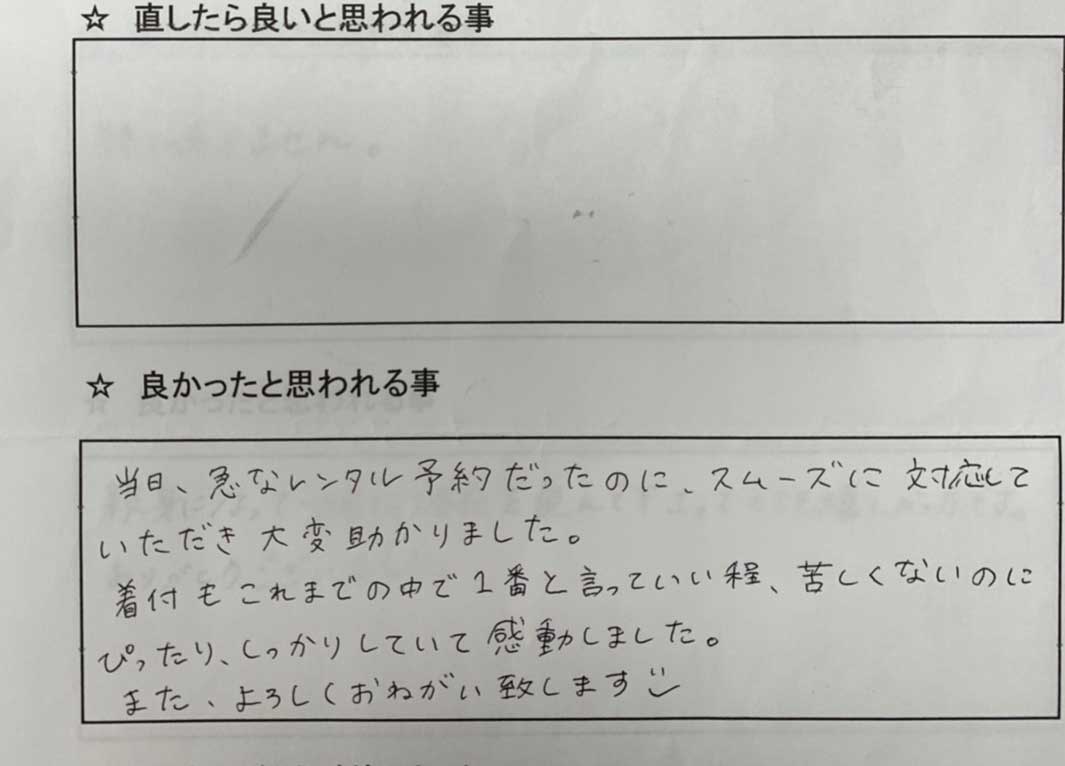 ☆ 直したら良いと思われる事
☆ 良かったと思われる事
当日、急なレンタル予約だったのに、スムーズに対応して
いただき大変助かりました。
着付もこれまでの中で1番と言っていい程、苦しくないのに
ぴったり、しっかりしていて感動しました。
また、よろしくおねがい致します